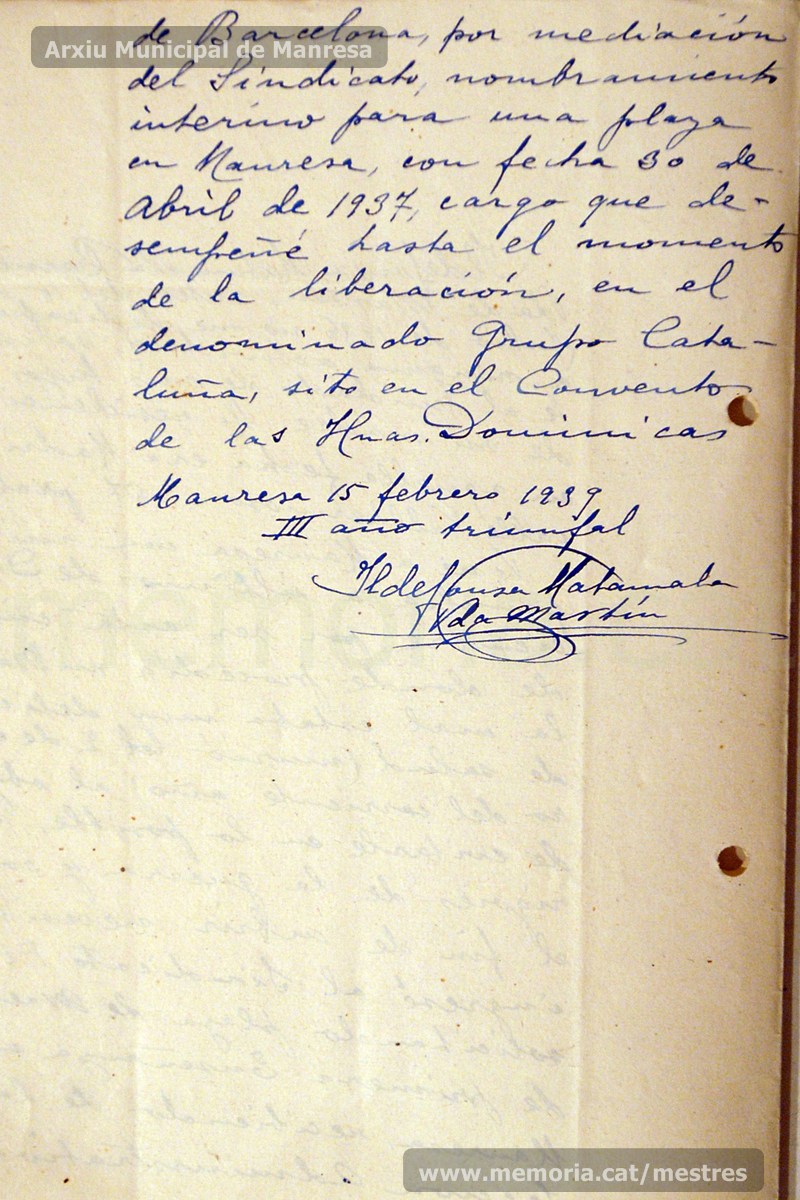 Arxiu Municipal de Manresa
de Barcelona, por mediación
del Sindicato, nombramiento
interino para una plaza
en Manresa, con fecha 30 de
abril de 1937, cargo que de-
sempeñé hasta el momento
de la liberación, en el
denominado Grupo Cata-
luña, sito en el Convento
de las Hnas. Dominicas
Manresa 15 febrero 1939
III año triunfal
Ildefonsa Matamala
Vda Martín
www.memoria.cat/mestres